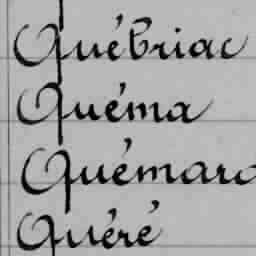 Québriac
Quéma
Quémar
Quéré